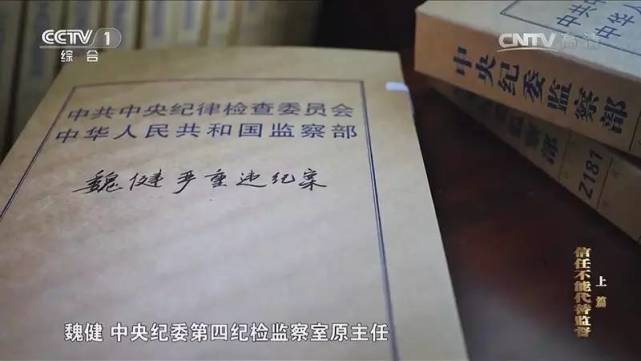 CCTV 1
综合
CNTV 高清
中共中央纪律检查委员会
中华人民共和国监察部
魏健严重违纪案
中共中
中华人
中央纪委监察部
2181
上篇
信任不能代替监督
魏健 中央纪委第四纪检监察室原主任